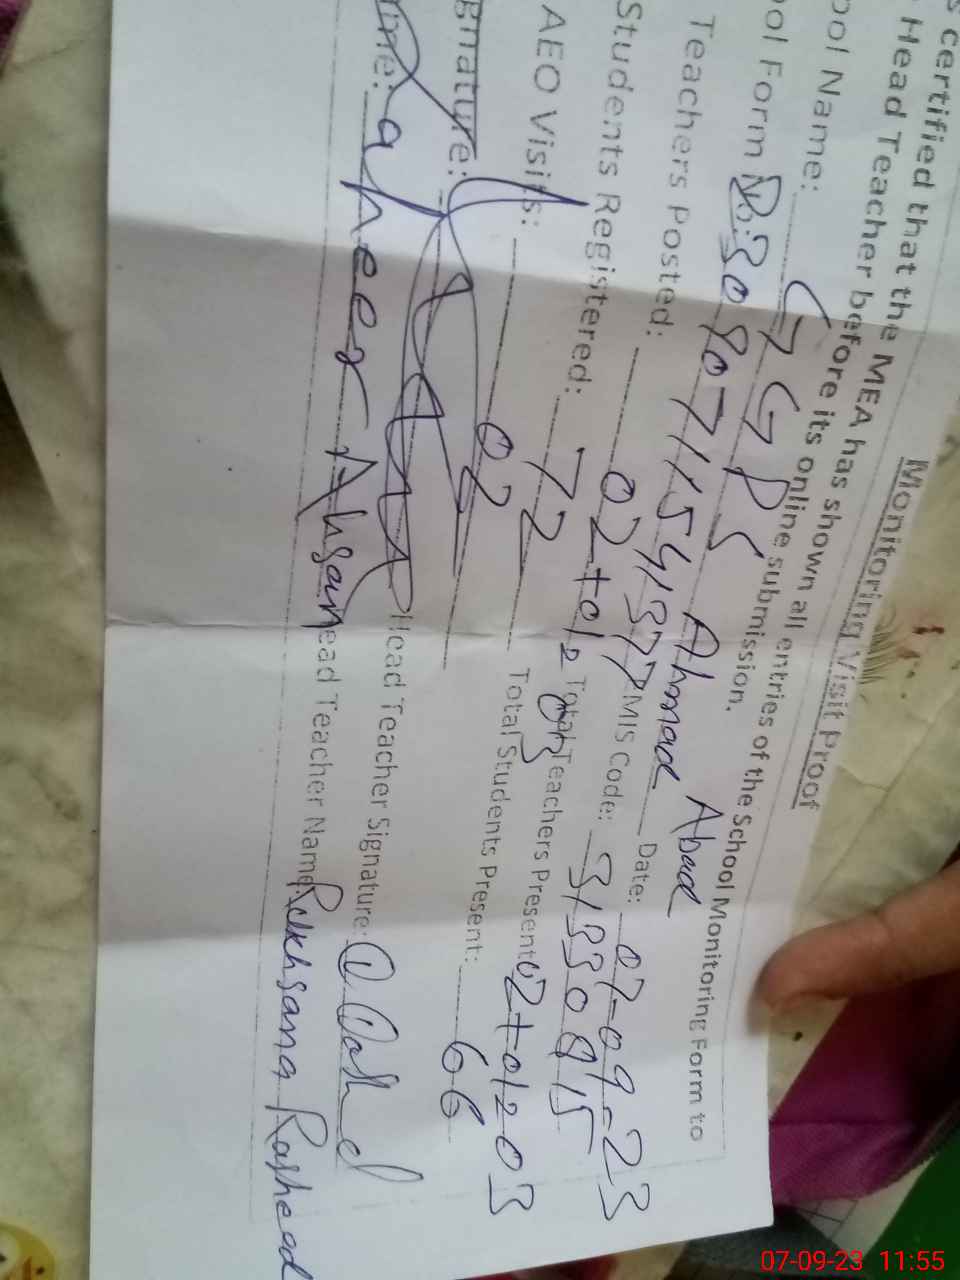 Monitoring Visit Proof
s certified that the MEA has shown all entries of the School Monitoring Form to
Head Teacher before its online submission.
ool Name: GGPS Ahmad Abad Date: 07-09-23
ool Form No: EMIS Code: 31330815
Teachers Posted: 02+01= Total Teachers Present: 02+01=03
Students Registered: 72 Total Students Present: 66
AEO Visits: 02
gnature: Head Teacher Signature:
me: Ahsan Head Teacher Name: Rukhsana Rasheed
07-09-23 11:55